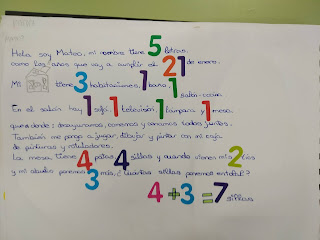 Hola soy Mateo, mi nombre tiene 5 letras
como los años que voy a cumplir el 21 de enero.
Mi tiene 3 habitaciones, 1 baño 1
salón-cocina.
En el salón hay 1 sofá 1 televisión 1 lámpara y 1 mesa
donde desayunamos, comemos y cenamos todos juntos.
También me pongo a jugar, dibujar y pintar con mi caja
de pinturas y rotuladores.
La mesa tiene 4 patas 4 sillas y cuando vienen mis 2 tíos
y mi abuela ponemos 3 más, ¿cuántas sillas ponemos en total?
4 + 3 = 7 sillas